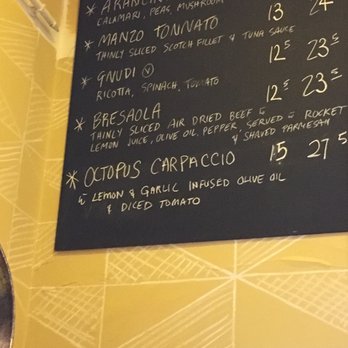 * ARANCINI 13 24
CALAMARI, PEAS, MUSHROOM
* MANZO TONNATO
THINLY SLICED SCOTCH FILLET & TUNA SAUCE
* GNUDI (V) 12⁵ 23⁵
RICOTTA, SPINACH, TOMATO
* BRESAOLA 12⁵ 23⁵
THINLY SLICED AIR DRIED BEEF w
LEMON JUICE, OLIVE OIL, PEPPER. SERVED w ROCKET
& SHAVED PARMESAN
* OCTOPUS CARPACCIO 15 27⁵
w LEMON & GARLIC INFUSED OLIVE OIL
& DICED TOMATO